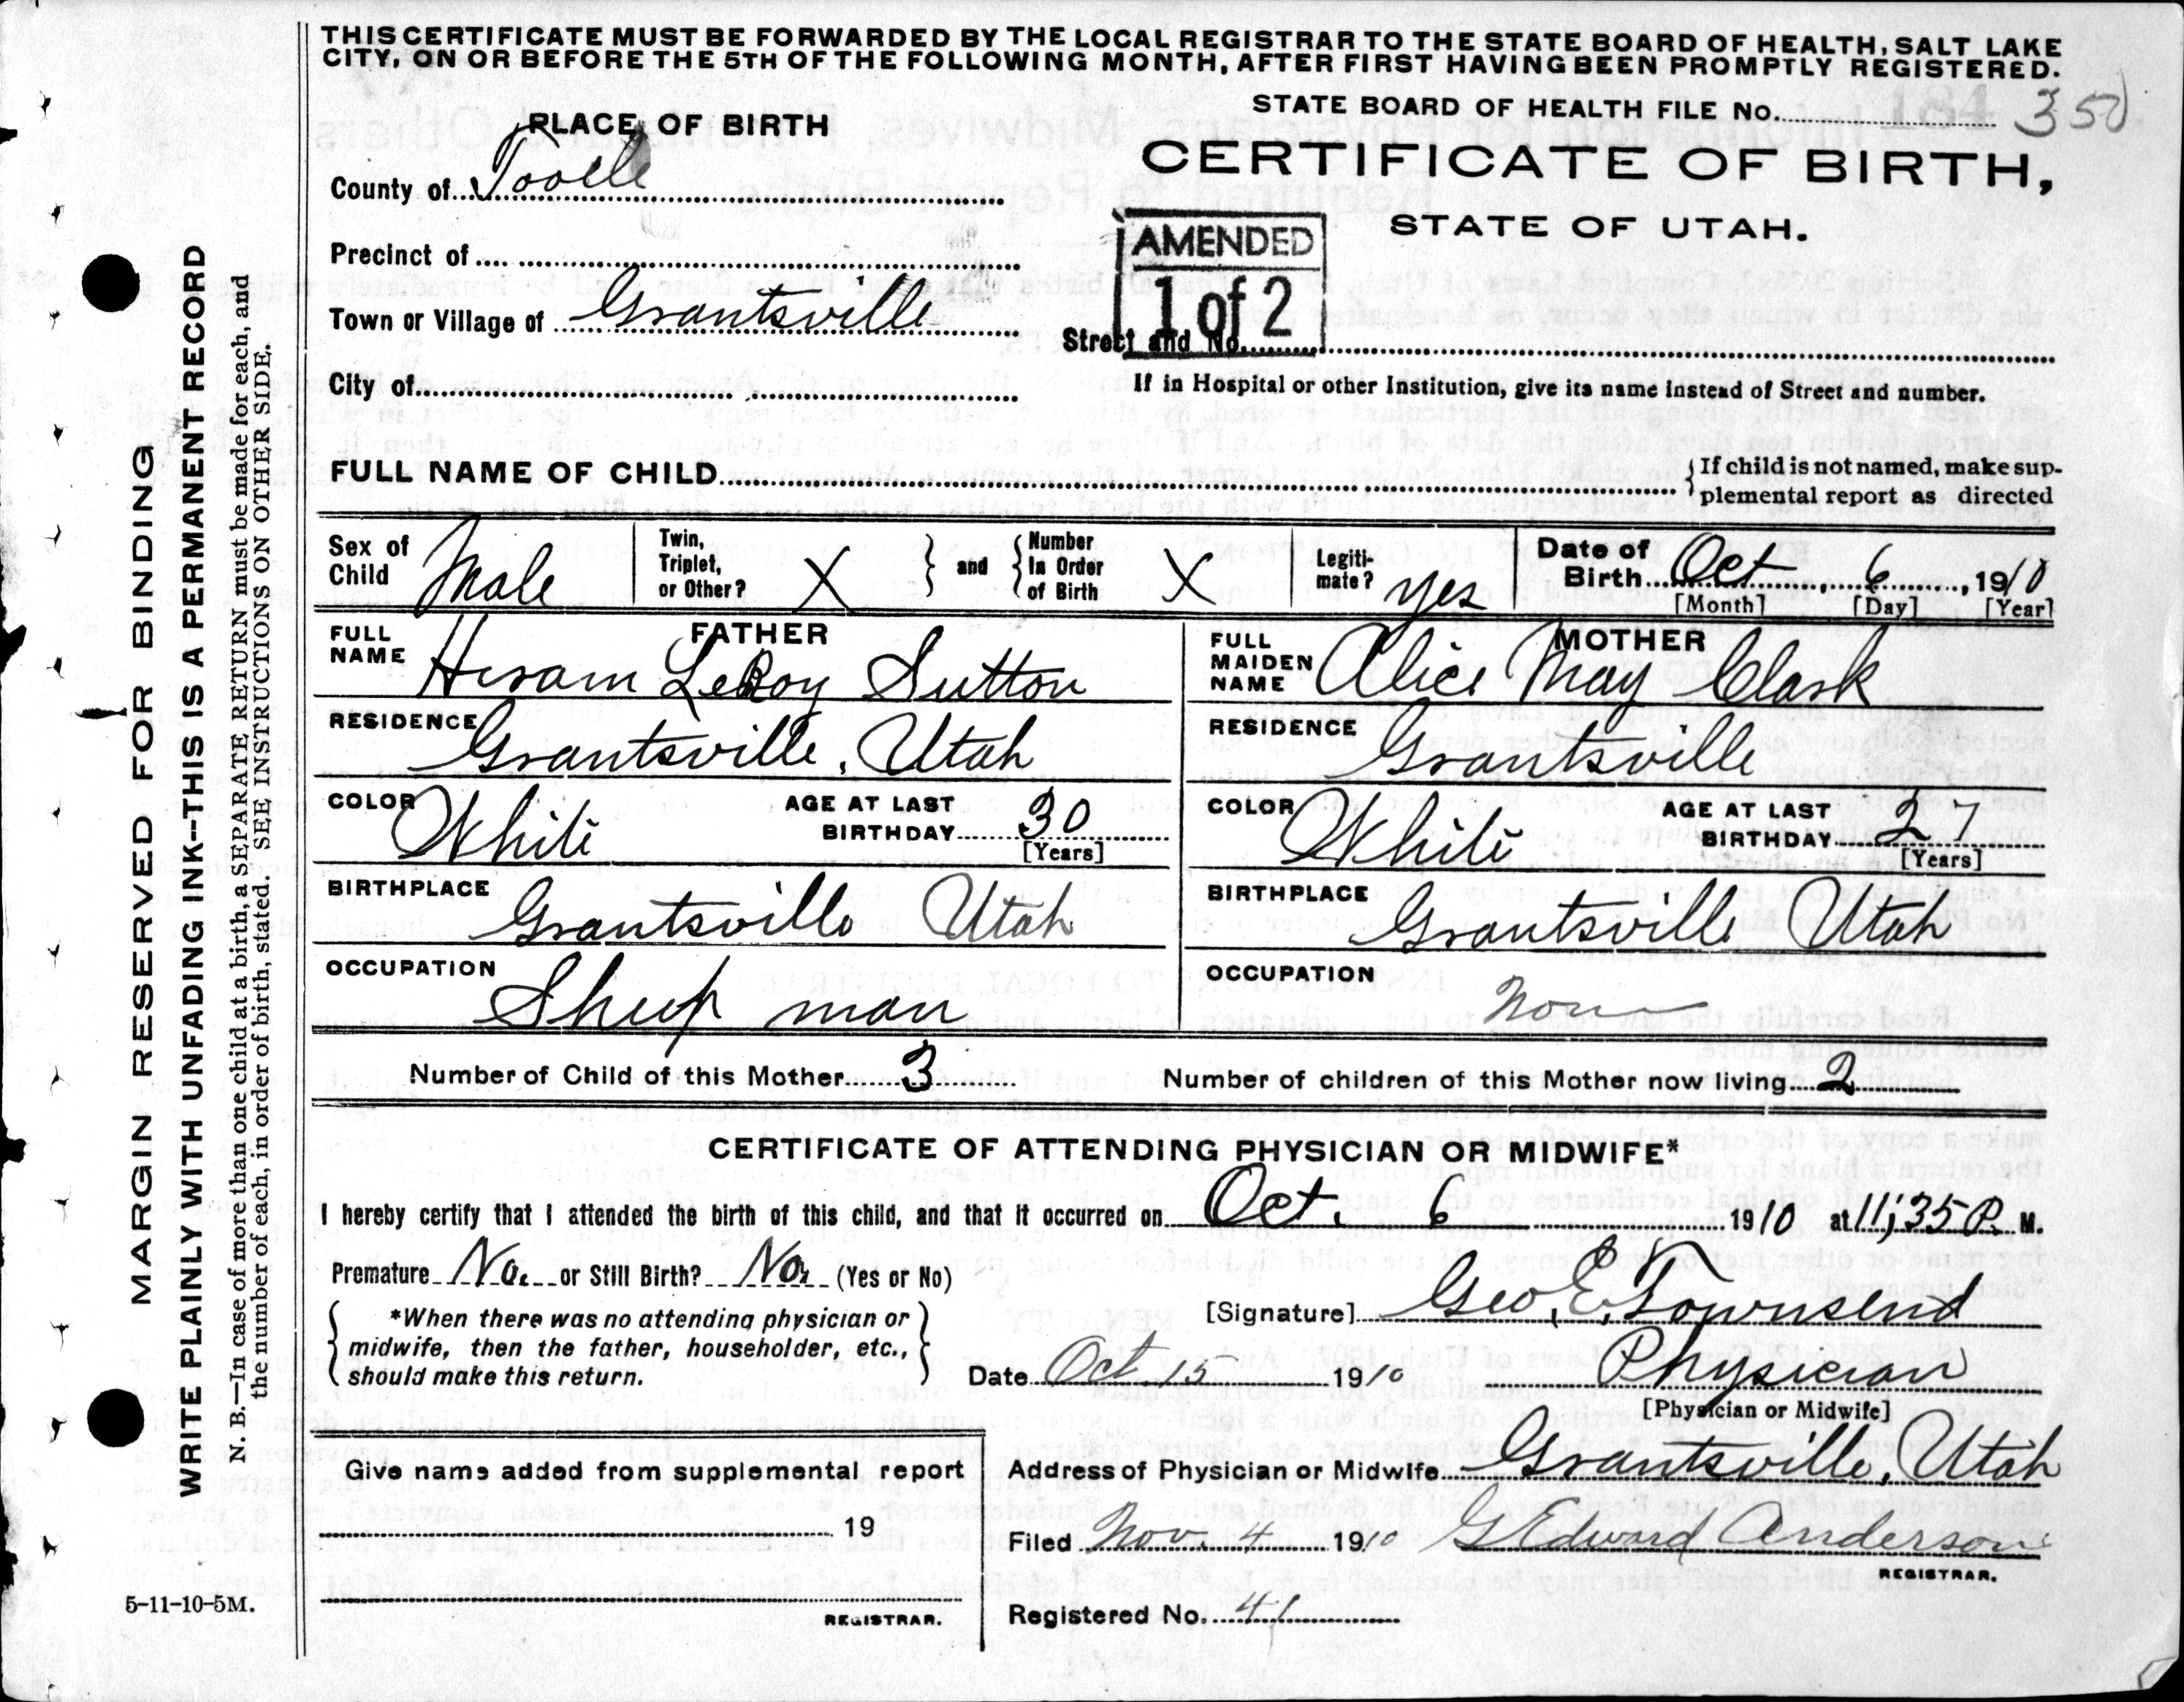 THIS CERTIFICATE MUST BE FORWARDED BY THE LOCAL REGISTRAR TO THE STATE BOARD OF HEALTH, SALT LAKE
CITY, ON OR BEFORE THE 5TH OF THE FOLLOWING MONTH, AFTER FIRST HAVING BEEN PROMPTLY REGISTERED.
STATE BOARD OF HEALTH FILE No. 184 350
PLACE OF BIRTH
CERTIFICATE OF BIRTH,
STATE OF UTAH.
County of Tooele
AMENDED
1 of 2
Precinct of
Town or Village of Grantsville
Street and No.
City of
If in Hospital or other Institution, give its name instead of Street and number.
FULL NAME OF CHILD
If child is not named, make sup-
plemental report as directed
Sex of Child Male
Twin, Triplet, or Other? X
and
Number In Order of Birth X
Legiti-mate? yes
Date of Birth Oct 6, 1910
[Month] [Day] [Year]
FATHER
FULL NAME Hiram LeRoy Sutton
RESIDENCE Grantsville, Utah
COLOR White AGE AT LAST BIRTHDAY 30
[Years]
BIRTHPLACE Grantsville Utah
OCCUPATION Sheep man
MOTHER
FULL MAIDEN NAME Alice May Clark
RESIDENCE Grantsville
COLOR White AGE AT LAST BIRTHDAY 27
[Years]
BIRTHPLACE Grantsville Utah
OCCUPATION None
Number of Child of this Mother 3 Number of children of this Mother now living 2
CERTIFICATE OF ATTENDING PHYSICIAN OR MIDWIFE*
I hereby certify that I attended the birth of this child, and that it occurred on Oct. 6 1910 at 11;35 P. M.
Premature No. or Still Birth? No. (Yes or No)
*When there was no attending physician or
midwife, then the father, householder, etc.,
should make this return.
[Signature] Geo. E. Townsend
Date Oct. 15 1910 Physician
[Physician or Midwife]
Give name added from supplemental report
19
REGISTRAR.
Address of Physician or Midwife Grantsville, Utah
Filed Nov. 4 1910 G Edward Anderson
REGISTRAR.
Registered No. 41
5-11-10-5M.
MARGIN RESERVED FOR BINDING
WRITE PLAINLY WITH UNFADING INK--THIS IS A PERMANENT RECORD
N. B.—In case of more than one child at a birth, a SEPARATE RETURN must be made for each, and
the number of each, in order of birth, stated. SEE INSTRUCTIONS ON OTHER SIDE.